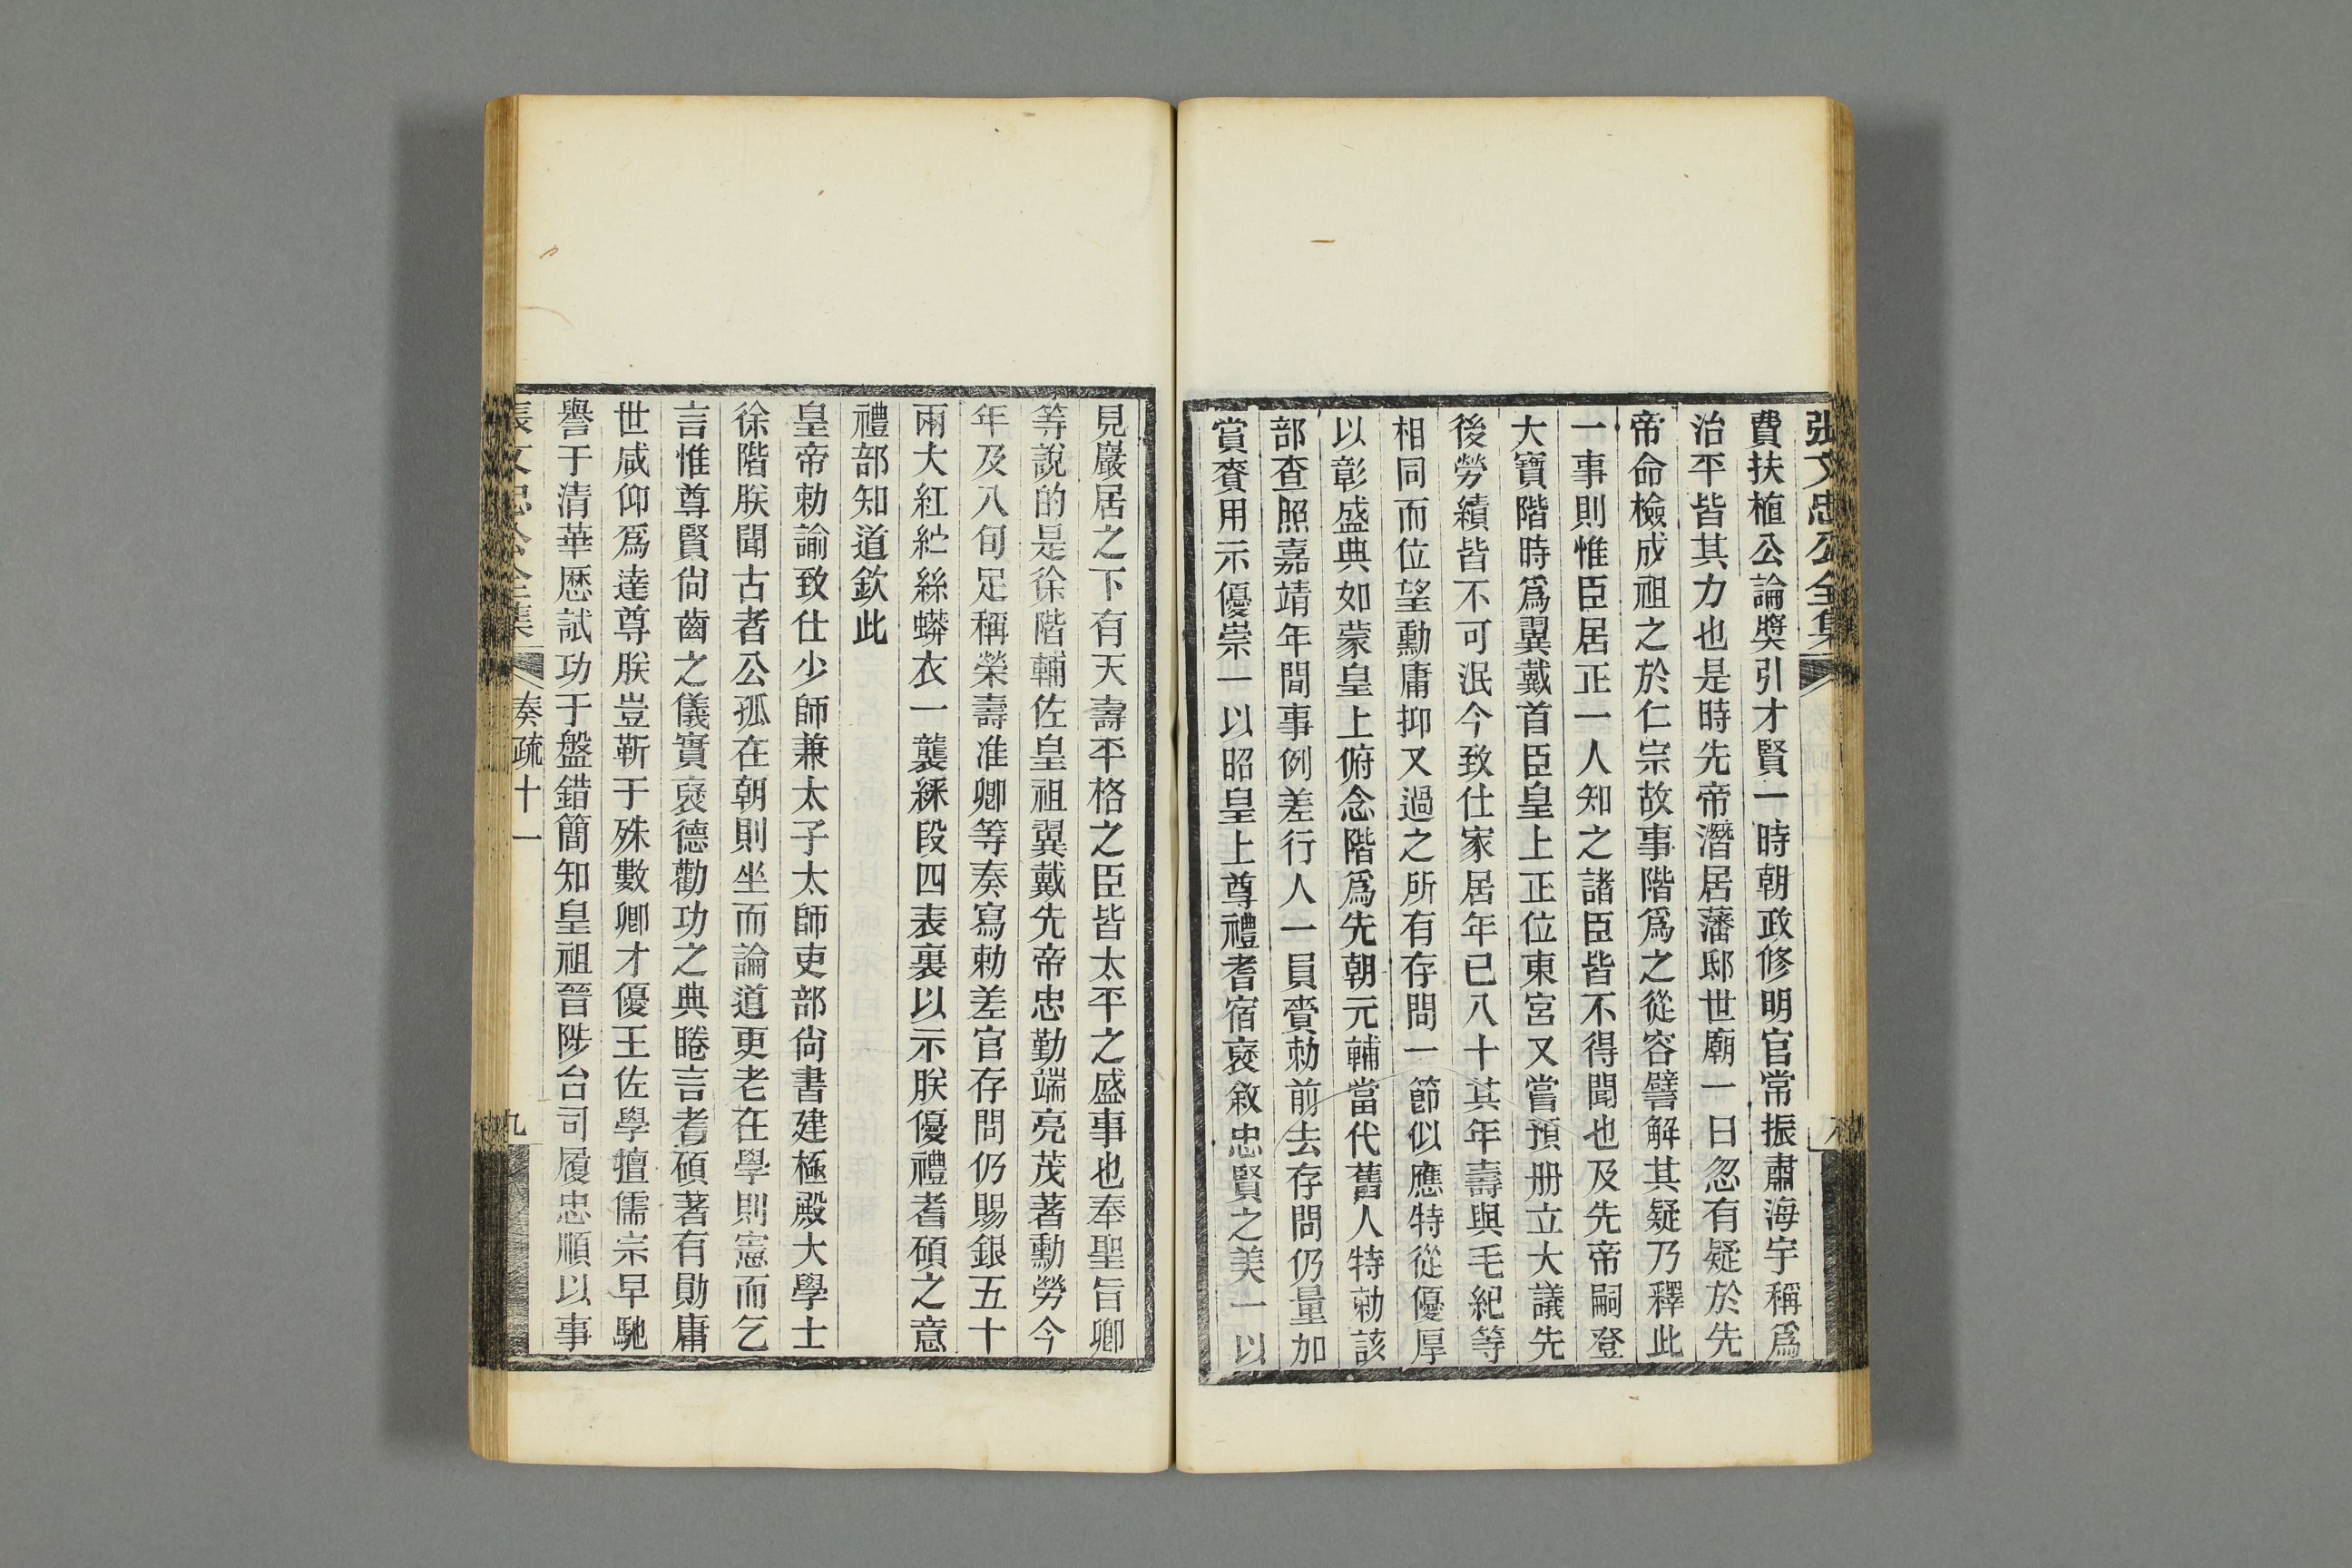 張文忠公全集
費扶植公論奬引才賢一時朝政修明官常振肅海宇稱爲
治平皆其力也是時先帝潛居藩邸世廟一日忽有疑於先
帝命檢成祖之於仁宗故事階爲之從容譬解其疑乃釋此
一事則惟臣居正一人知之諸臣皆不得聞也及先帝嗣登
大寶階時爲翼戴首臣皇上正位東宮又嘗預册立大議先
後勞績皆不可泯今致仕家居年已八十其年壽與毛紀等
相同而位望勳庸抑又過之所有存問一節似應特從優厚
以彰盛典如蒙皇上俯念階爲先朝元輔當代舊人特勅該
部查照嘉靖年間事例差行人一員賫勅前去存問仍量加
賞賚用示優崇一以昭皇上尊禮耆宿襃敘忠賢之美一以
見巖居之下有天壽平格之臣皆太平之盛事也奉聖旨卿
等說的是徐階輔佐皇祖翼戴先帝忠勤端亮茂著勳勞今
年及八旬足稱榮壽准卿等奏寫勅差官存問仍賜銀五十
兩大紅紵絲蟒衣一襲綵段四表裏以示朕優禮耆碩之意
禮部知道欽此
皇帝勅諭致仕少師兼太子太師吏部尙書建極殿大學士
徐階朕聞古者公孤在朝則坐而論道更老在學則憲而乞
言惟尊賢尙齒之儀實襃德勸功之典睠言耆碩著有勛庸
世咸仰爲達尊朕豈靳于殊數卿才優王佐學擅儒宗早馳
譽于清華歷試功于盤錯簡知皇祖晉陟台司履忠順以事
張文忠公全集　奏疏十一　九